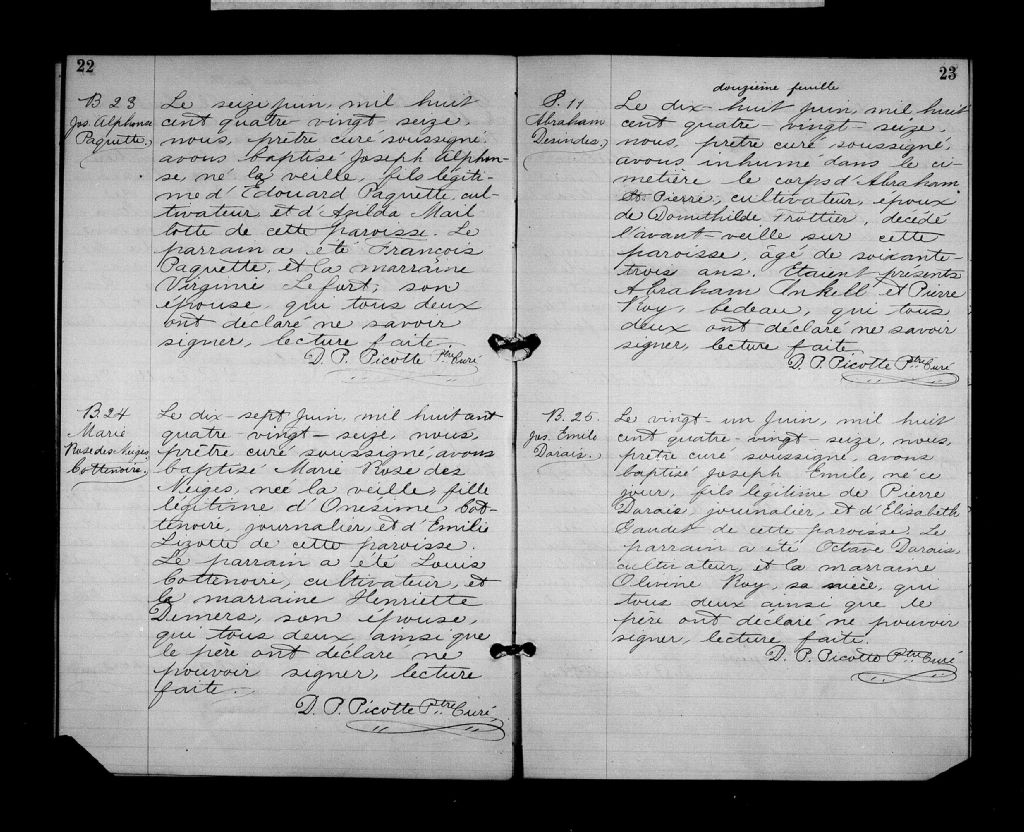 22
B 23
Jos. Alphonse
Paquette,
Le seize juin, mil huit
cent quatre-vingt seize,
nous, prêtre curé soussigné,
avons baptisé Joseph Alphon-
se, né la veille, fils légiti-
me d'Edouard Paquette, cul-
tivateur et d'Agilda Mail
lotte de cette paroisse. Le
parrain a été François
Paquette, et la marraine
Virginie Lefort, son
épouse qui tous deux
ont déclaré ne savoir
signer, lecture faite.
D. P. Picotte Ptre Curé
B. 24
Marie
Rose des Neiges
Cottenoire.
Le dix-sept Juin, mil huit ant
quatre-vingt-seize, nous,
prêtre curé soussigné, avons
baptisé Marie Rose des
Neiges, née la veille, fille
légitime d'Onesime Cot-
tenoire, journalier, et d'Emilie
Lizotte de cette paroisse.
Le parrain a été Louis
Cottenoire, cultivateur, et
la marraine Henriette
Demers, son épouse,
qui tous deux ainsi que
le père ont déclaré ne
pouvoir signer, lecture
faite.
D. P. Picotte Ptre Curé,
23
douzième feuille
S. 11
Abraham
Desindes,
Le dix-huit juin, mil huit
cent quatre-vingt-seize,
nous, prêtre curé soussigné,
avons inhumé dans le ci-
metière le corps d'Abraham
St. Pierre, cultivateur, époux
de Domithilde Trottier, décédé
l'avant-veille sur cette
paroisse, âgé de soixante-
trois ans. Etaient présents
Abraham et Pierre
Roy, bedeau, qui tous
deux ont déclaré ne savoir
signer, lecture faite
D. P. Picotte Ptre Curé
B. 25.
Jos. Emile
Darais.
Le vingt-un Juin, mil huit
cent quatre-vingt-seize, nous,
prêtre curé soussigné, avons
baptisé Joseph Emile, né ce
jour, fils légitime de Pierre
Darais, journalier, et d'Elisabeth
Gaudet de cette paroisse. Le
parrain a été Octave Darais,
cultivateur, et la marraine
Olivine Roy, sa nièce, qui
tous deux ainsi que le
père ont déclaré ne pouvoir
signer, lecture faite.
D. P. Picotte Ptre Curé